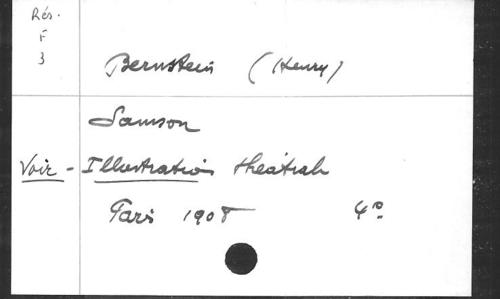 Rés.
F
3
Bernstein (Henry)
Samson
Voir - Illustration théâtrale
Paris 1908 4º